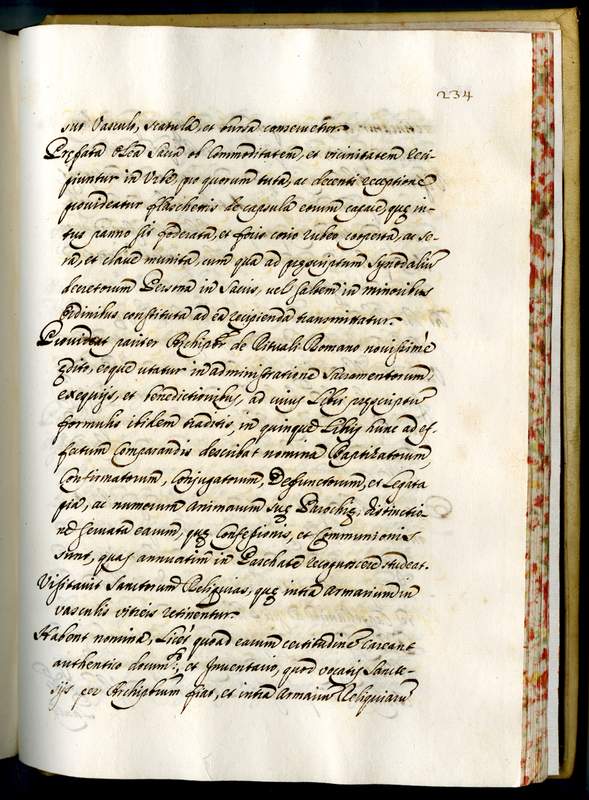 234
suo Vasculo, scatula, et bursa conservetur.
Prefata Olea Sacra ob Commoditatem, et vicinitatem reci-
piuntur in Urbe, pro quorum tuta, ac decenti receptione
provideatur flaschettis de capsula eorum capace, que in-
tus panno sit foderata, et foris corio rubeo cooperta, ac se-
ra, et clave munita, cum qua ad prescriptum Synodaliũ
decretorum Persona in Sacris, vel saltem in minoribus
Ordinibus constituta ad ea recipienda transmittatur.
Provideat pariter Archipbr de Rituali Romano novissime
edito, eoque utatur in administratione Sacramentorum,
exequijs, et benedictionibus, ad cuius Libri prescriptũ
formulis ibidem traditis, in quinque Libris hunc ad ef-
fectum Comparandis describat nomina Baptizatorum,
Confirmatorum, Conjugatorum, Defunctorum, et Legata
pia, ac numerum Animarum sue Parochie, distinctio
ne servata earum, que Confessionis, et Communionis
sunt, quas annuatim in Paschate recognoscere studeat.
Visitavit Sanctorum Reliquias, que intra Armarium in
vasculis vitreis retinentur.
Habent nomina, Licet quoad earum certitudinẽ careant
authentico docum.to, et Inventario, quod vocatis Sancte-
sijs per Archiptrum fiat, et intra Armariũ Reliquiarũ